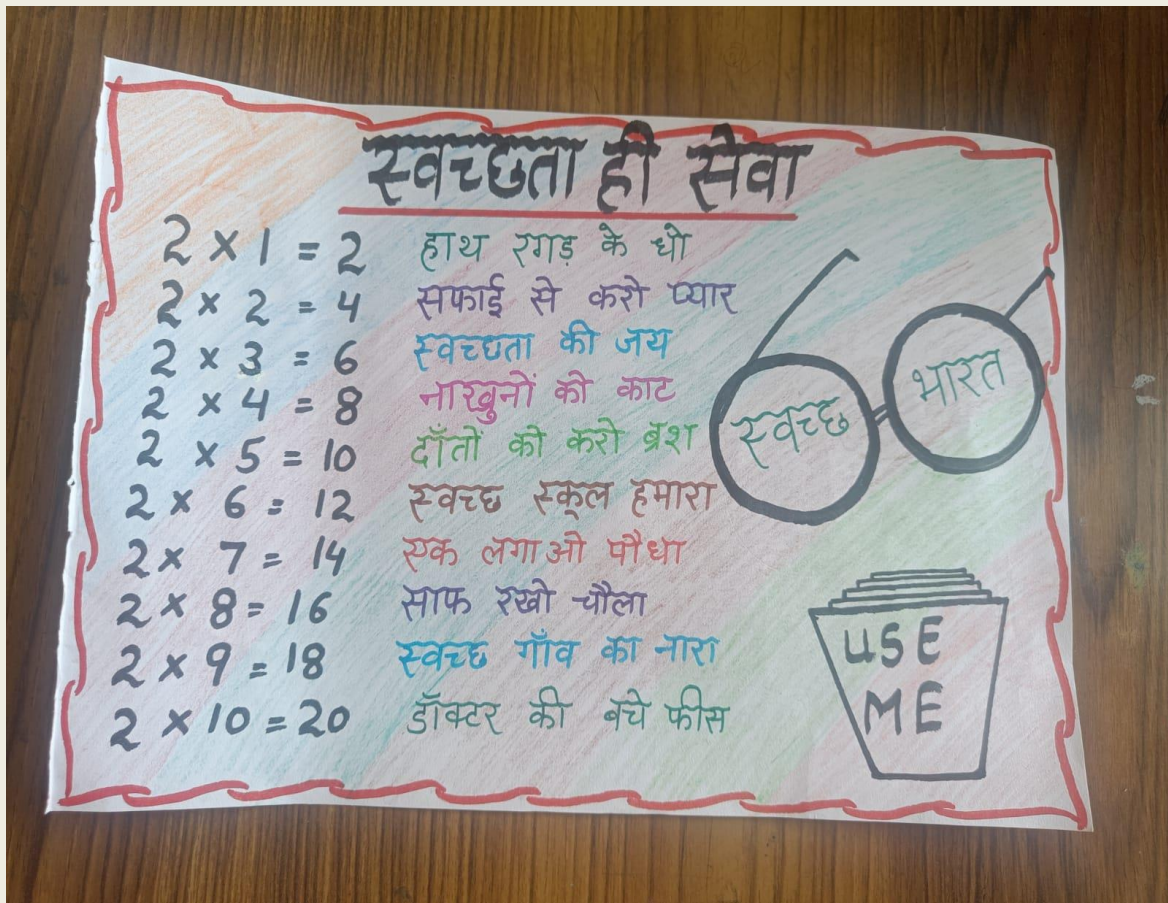 स्वच्छता ही सेवा
2 × 1 = 2 हाथ रगड़ के धो
2 × 2 = 4 सफाई से करो प्यार
2 × 3 = 6 स्वच्छता की जय
2 × 4 = 8 नाखुनों को काट
2 × 5 = 10 दाँतो को करो ब्रश
2 × 6 = 12 स्वच्छ स्कूल हमारा
2 × 7 = 14 एक लगाओ पौधा
2 × 8 = 16 साफ रखो चौला
2 × 9 = 18 स्वच्छ गाँव का नारा
2 × 10 = 20 डॉक्टर की बचे फीस
स्वच्छ भारत
USE
ME